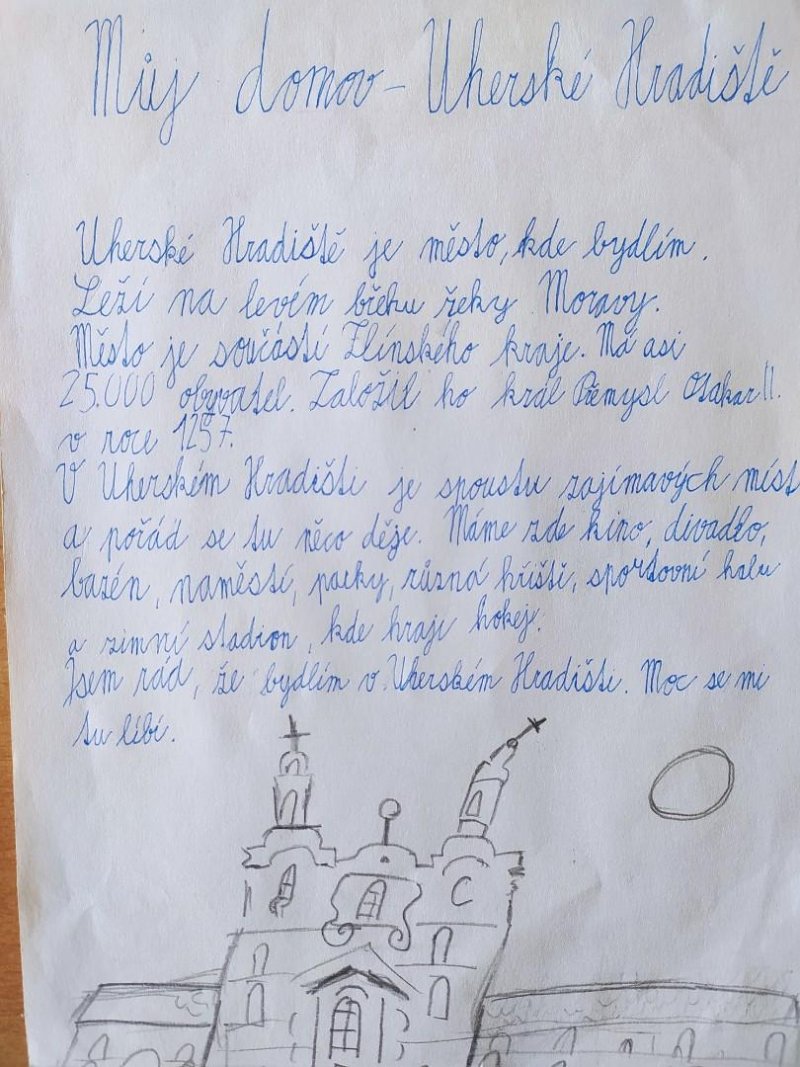 Můj domov - Uherské Hradiště
Uherské Hradiště je město, kde bydlím.
Leží na levém břehu řeky Moravy.
Město je součástí Zlínského kraje. Má asi
25.000 obyvatel. Založil ho král Přemysl Otakar II.
v roce 1257.
V Uherském Hradišti je spoustu zajímavých míst
a pořád se tu něco děje. Máme zde kino, divadlo,
bazén, naměstí, parky, různá hřiště, sportovní halu
a zimní stadion, kde hraji hokej.
Jsem rád, že bydlím v Uherském Hradišti. Moc se mi
tu líbí.